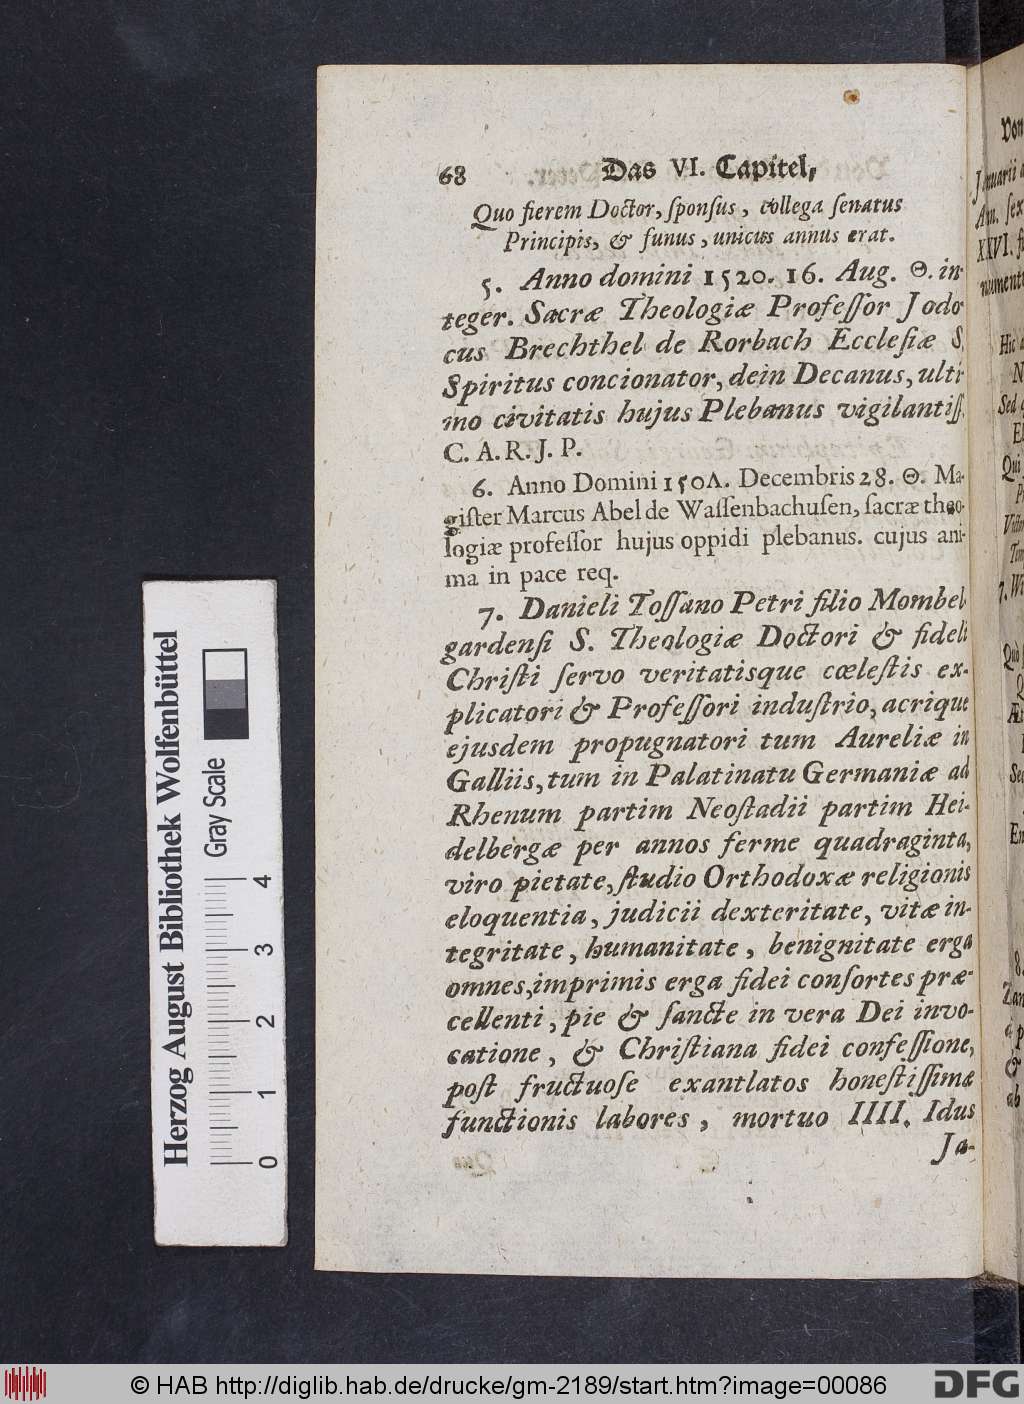 68 Das VI. Capitel,
Quo fierem Doctor, ſponſus, collega ſenatus
Principis, & funus, unicus annus erat.
5. Anno domini 1520. 16. Aug. Θ. in-
teger. Sacræ Theologiæ Profeſſor Jodo
cus Brechthel de Rorbach Eccleſiæ S.
Spiritus concionator, dein Decanus, ulti
mo civitatis hujus Plebanus vigilantiſſ.
C. A. R. J. P.
6. Anno Domini 150Λ. Decembris 28. Θ. Ma-
giſter Marcus Abel de Waſſenbachuſen, ſacræ theo-
logiæ profeſſor hujus oppidi plebanus. cujus ani-
ma in pace req.
7. Danieli Toſſano Petri filio Mombel-
gardenſi S. Theologiæ Doctori & fideli
Chriſti ſervo veritatisque cœleſtis ex-
plicatori & Profeſſori induſtrio, acrique
ejusdem propugnatori tum Aureliæ in
Galliis, tum in Palatinatu Germaniæ ad
Rhenum partim Neoſtadii partim Hei-
delbergæ per annos ferme quadraginta,
viro pietate, ſtudio Orthodoxæ religionis
eloquentia, judicii dexteritate, vitæ in-
tegritate, humanitate, benignitate erga
omnes, imprimis erga fidei conſortes præ-
cellenti, pie & ſancte in vera Dei invo-
catione, & Chriſtiana fidei confeſſione,
poſt fructuoſe exantlatos honeſtiſſimæ
functionis labores, mortuo IIII. Idus
Ja-
Herzog August Bibliothek Wolfenbüttel
Gray Scale
0 1 2 3 4
© HAB http://diglib.hab.de/drucke/gm-2189/start.htm?image=00086
DFG